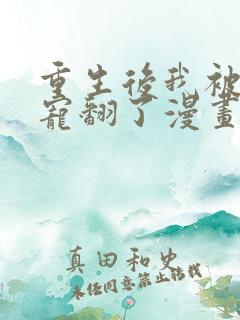 重生後我被
寵翻了漫畫
真田和史
未经同意禁止转载